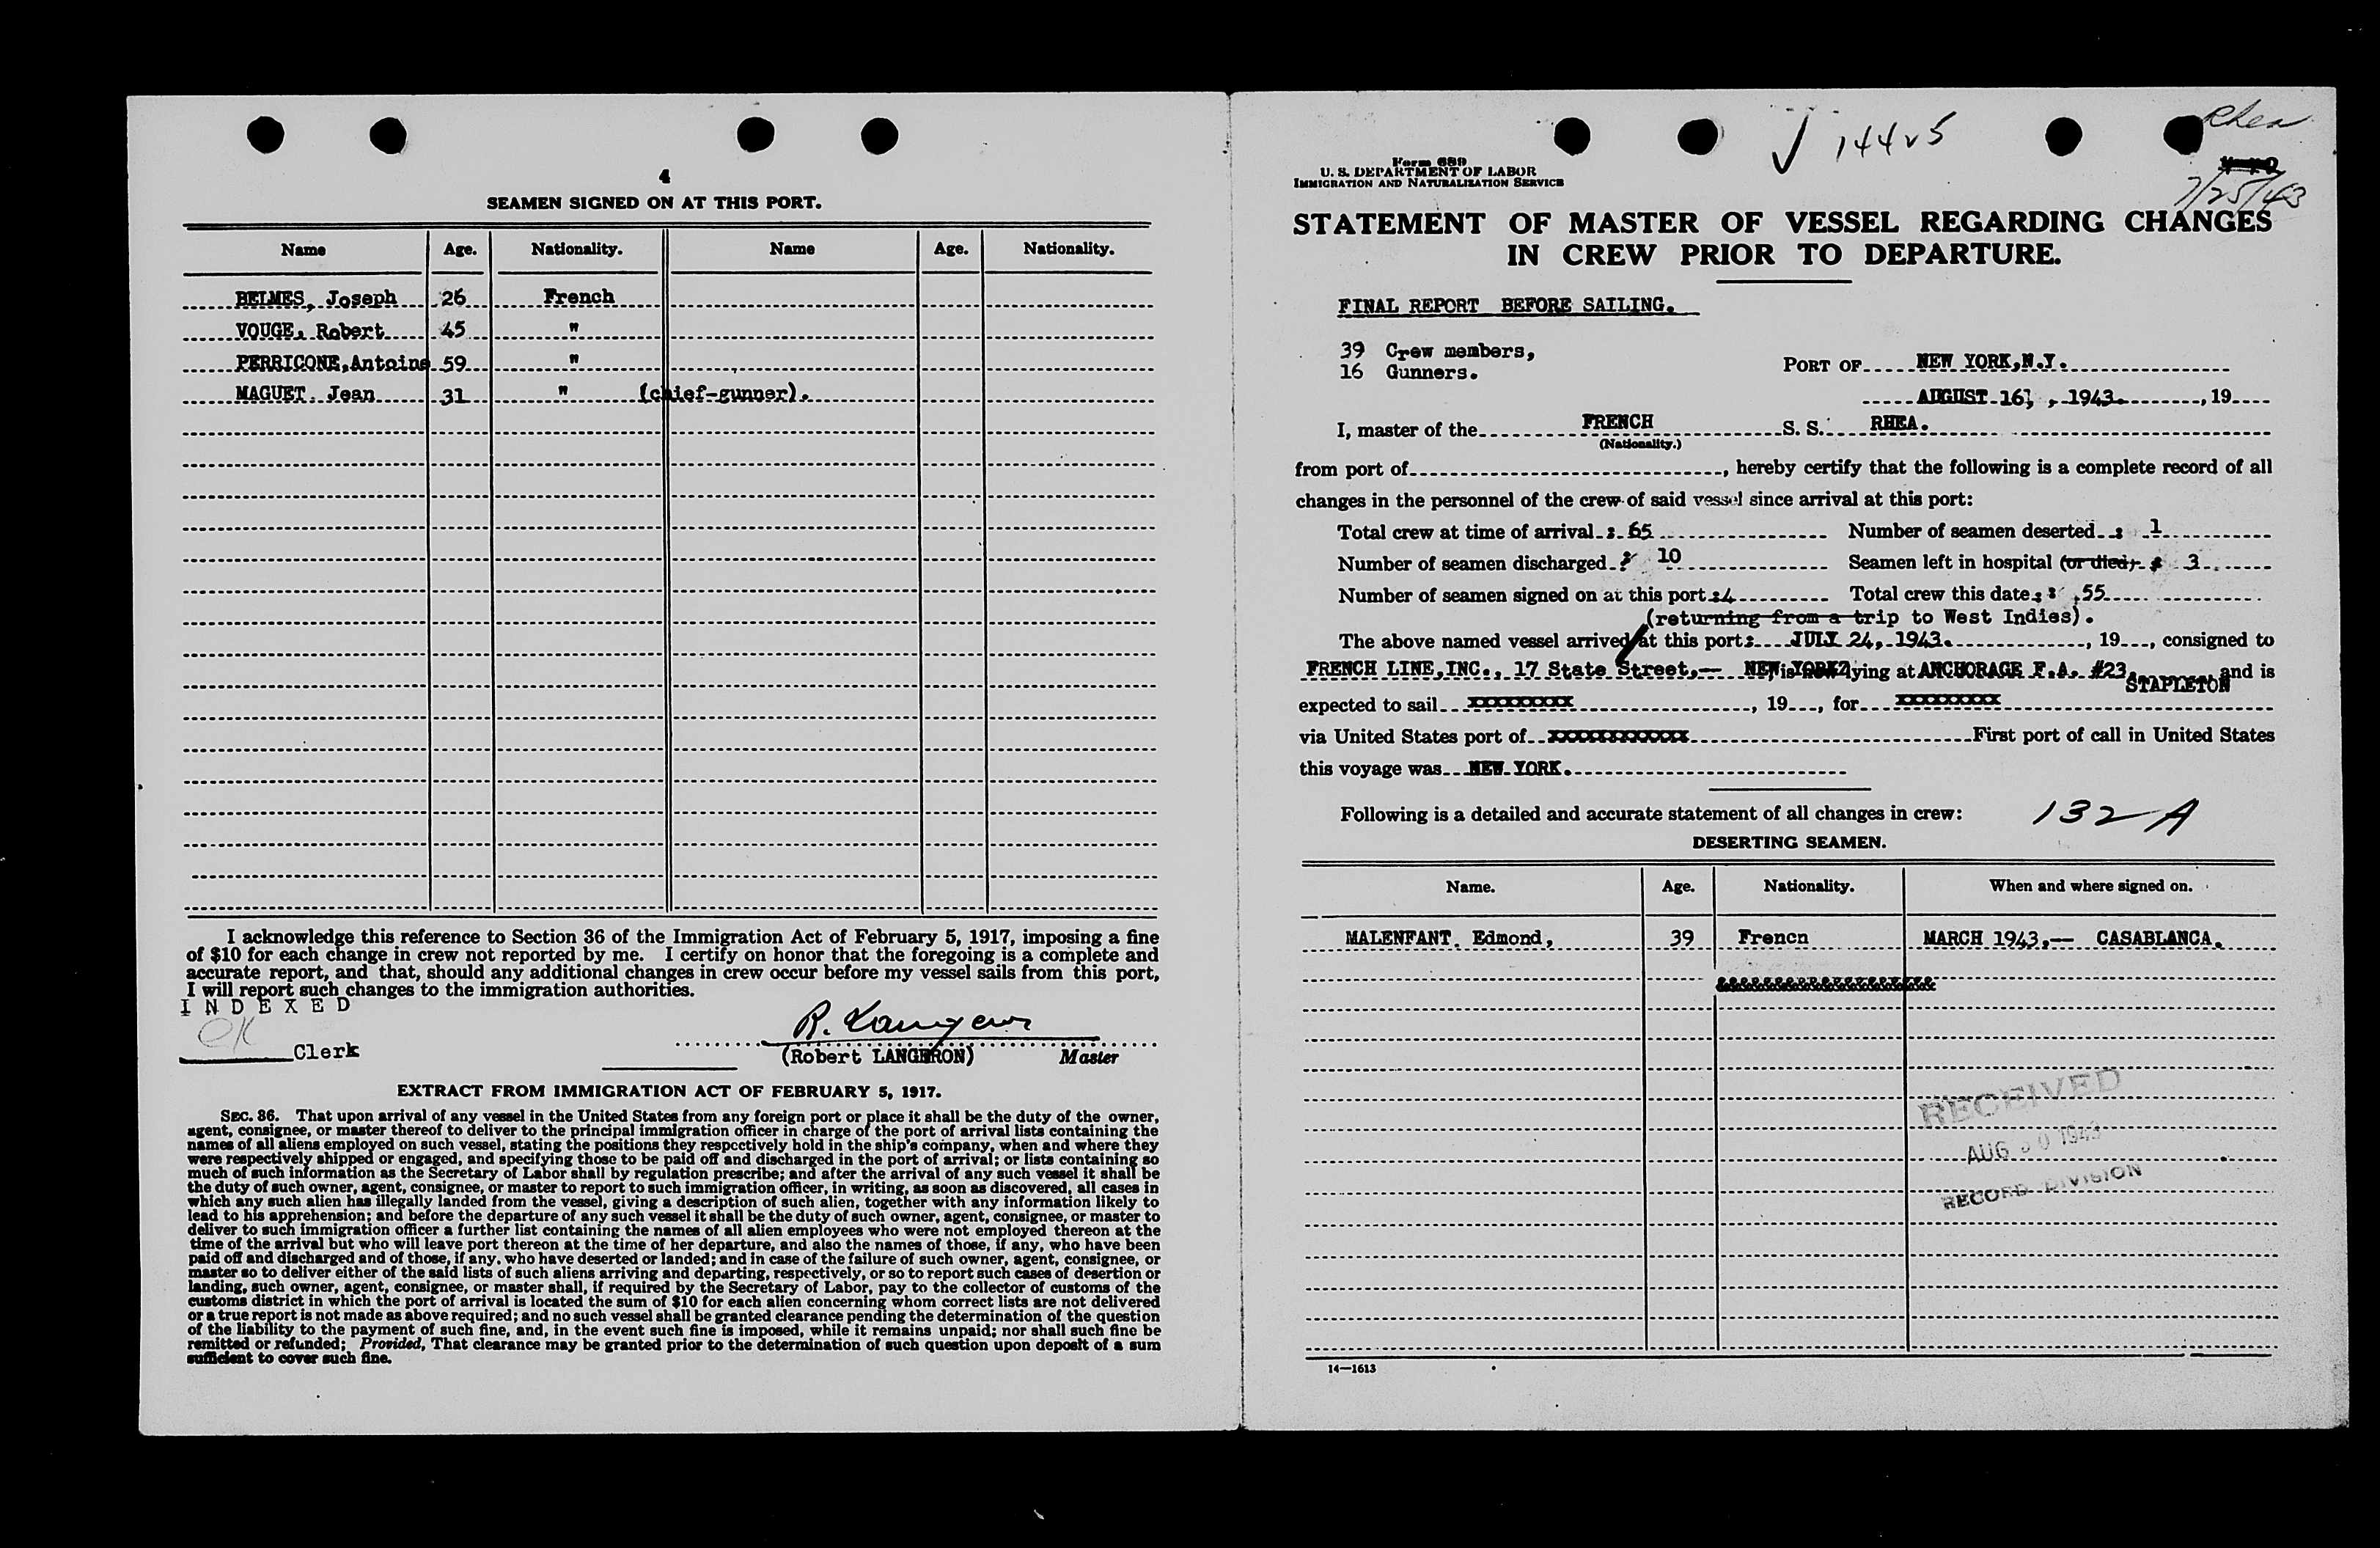 4
SEAMEN SIGNED ON AT THIS PORT.
Name Age. Nationality. Name Age. Nationality.
BELMES, Joseph 26 French
VOUGE, Robert 45 "
PERRICONE,Antoine 59 "
MAGUET. Jean 31 " (chief-gunner).
I acknowledge this reference to Section 36 of the Immigration Act of February 5, 1917, imposing a fine
of $10 for each change in crew not reported by me. I certify on honor that the foregoing is a complete and
accurate report, and that, should any additional changes in crew occur before my vessel sails from this port,
I will report such changes to the immigration authorities.
I N D E X E D
OK
Clerk
R. Langeron
(Robert LANGERON) Master
EXTRACT FROM IMMIGRATION ACT OF FEBRUARY 5, 1917.
SEC. 36. That upon arrival of any vessel in the United States from any foreign port or place it shall be the duty of the owner,
agent, consignee, or master thereof to deliver to the principal immigration officer in charge of the port of arrival lists containing the
names of all aliens employed on such vessel, stating the positions they respectively hold in the ship's company, when and where they
were respectively shipped or engaged, and specifying those to be paid off and discharged in the port of arrival; or lists containing so
much of such information as the Secretary of Labor shall by regulation prescribe; and after the arrival of any such vessel it shall be
the duty of such owner, agent, consignee, or master to report to such immigration officer, in writing, as soon as discovered, all cases in
which any such alien has illegally landed from the vessel, giving a description of such alien, together with any information likely to
lead to his apprehension; and before the departure of any such vessel it shall be the duty of such owner, agent, consignee, or master to
deliver to such immigration officer a further list containing the names of all alien employees who were not employed thereon at the
time of the arrival but who will leave port thereon at the time of her departure, and also the names of those, if any, who have been
paid off and discharged and of those, if any, who have deserted or landed; and in case of the failure of such owner, agent, consignee, or
master so to deliver either of the said lists of such aliens arriving and departing, respectively, or so to report such cases of desertion or
landing, such owner, agent, consignee, or master shall, if required by the Secretary of Labor, pay to the collector of customs of the
customs district in which the port of arrival is located the sum of $10 for each alien concerning whom correct lists are not delivered
or a true report is not made as above required; and no such vessel shall be granted clearance pending the determination of the question
of the liability to the payment of such fine, and, in the event such fine is imposed, while it remains unpaid; nor shall such fine be
remitted or refunded; Provided, That clearance may be granted prior to the determination of such question upon deposit of a sum
sufficient to cover such fine.
Rhea
7/25/43
Form 689
U. S. DEPARTMENT OF LABOR
IMMIGRATION AND NATURALIZATION SERVICE
STATEMENT OF MASTER OF VESSEL REGARDING CHANGES
IN CREW PRIOR TO DEPARTURE.
FINAL REPORT BEFORE SAILING.
39 Crew members,
16 Gunners.
PORT OF NEW YORK,N.Y.
AUGUST 16, , 1943. , 19
I, master of the FRENCH S. S. RHEA.
(Nationality.)
from port of , hereby certify that the following is a complete record of all
changes in the personnel of the crew of said vessel since arrival at this port:
Total crew at time of arrival : 65 Number of seamen deserted : 1
Number of seamen discharged : 10 Seamen left in hospital (or died) : 3
Number of seamen signed on at this port :4 Total crew this date : 55
(returning from a trip to West Indies).
The above named vessel arrived at this port: JULY 24, 1943. , 19 , consigned to
FRENCH LINE,INC., 17 State Street,— NEW YORK, is now lying at ANCHORAGE F.A. #23, STAPLETON and is
expected to sail XXXXXXXXX , 19 , for XXXXXXXXX
via United States port of XXXXXXXXXXXX First port of call in United States
this voyage was NEW YORK.
Following is a detailed and accurate statement of all changes in crew:
132 A
DESERTING SEAMEN.
Name. Age. Nationality. When and where signed on.
MALENFANT. Edmond, 39 Frencn MARCH 1943,— CASABLANCA.
&&&&&&&&&&&&&&&&&&&&
RECEIVED
AUG 1943
RECORD DIVISION
14—1613